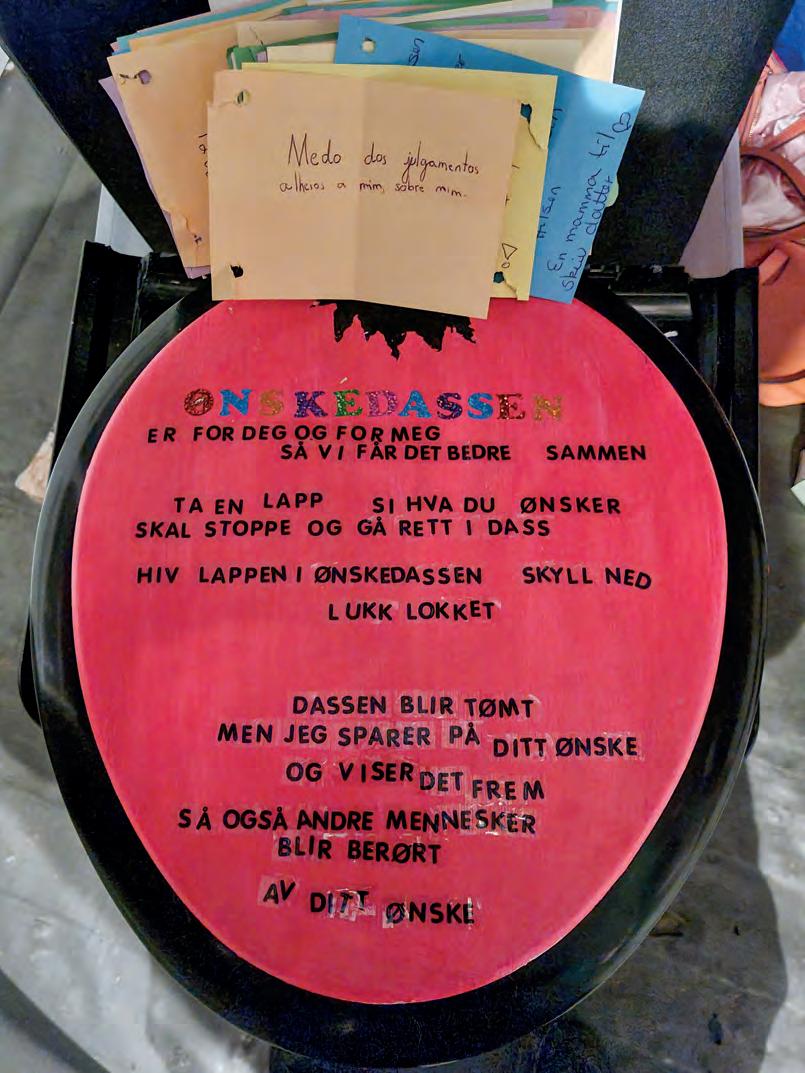 Medo dos julgamentos
alheios a mim, sobre mim.
En mamma til
skin datter
ØNSKEDASSEN
ER FOR DEG OG FOR MEG
SÅ VI FÅR DET BEDRE SAMMEN
TA EN LAPP SI HVA DU ØNSKER
SKAL STOPPE OG GÅ RETT I DASS
HIV LAPPEN I ØNSKEDASSEN SKYLL NED
LUKK LOKKET
DASSEN BLIR TØMT
MEN JEG SPARER PÅ DITT ØNSKE
OG VISER DET FREM
SÅ OGSÅ ANDRE MENNESKER
BLIR BERØRT
AV DITT ØNSKE